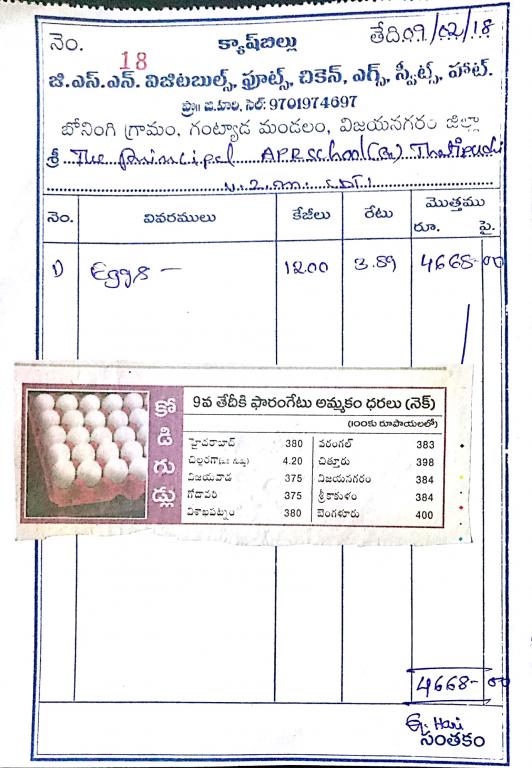 నెం. 18 క్యాష్‌బిల్లు తేది 09/02/18
జి.ఎస్.ఎన్. విజిటబుల్స్, ఫ్రూట్స్, చికెన్, ఎగ్స్, స్వీట్స్, హాట్.
ప్రొః జి.హరి, సెల్: 9701974697
బోనింగి గ్రామం, గంట్యాడ మండలం, విజయనగరం జిల్లా
శ్రీ The Principal APR School (B) Thatipudi
నెం. వివరములు కేజీలు రేటు మొత్తము
రూ. పై.
1) Eggs - 1200 3.89 4668-00
కోడిగుడ్లు
9వ తేదీకి ఫారంగేటు అమ్మకం ధరలు (నెక్)
(100కు రూపాయలలో)
హైదరాబాద్ 380 వరంగల్ 383
చిల్లరగా 4.20 చిత్తూరు 398
విజయవాడ 375 విజయనగరం 384
గోదావరి 375 శ్రీకాకుళం 384
విశాఖపట్నం 380 బెంగళూరు 400
4668-00
G. Hari
సంతకం